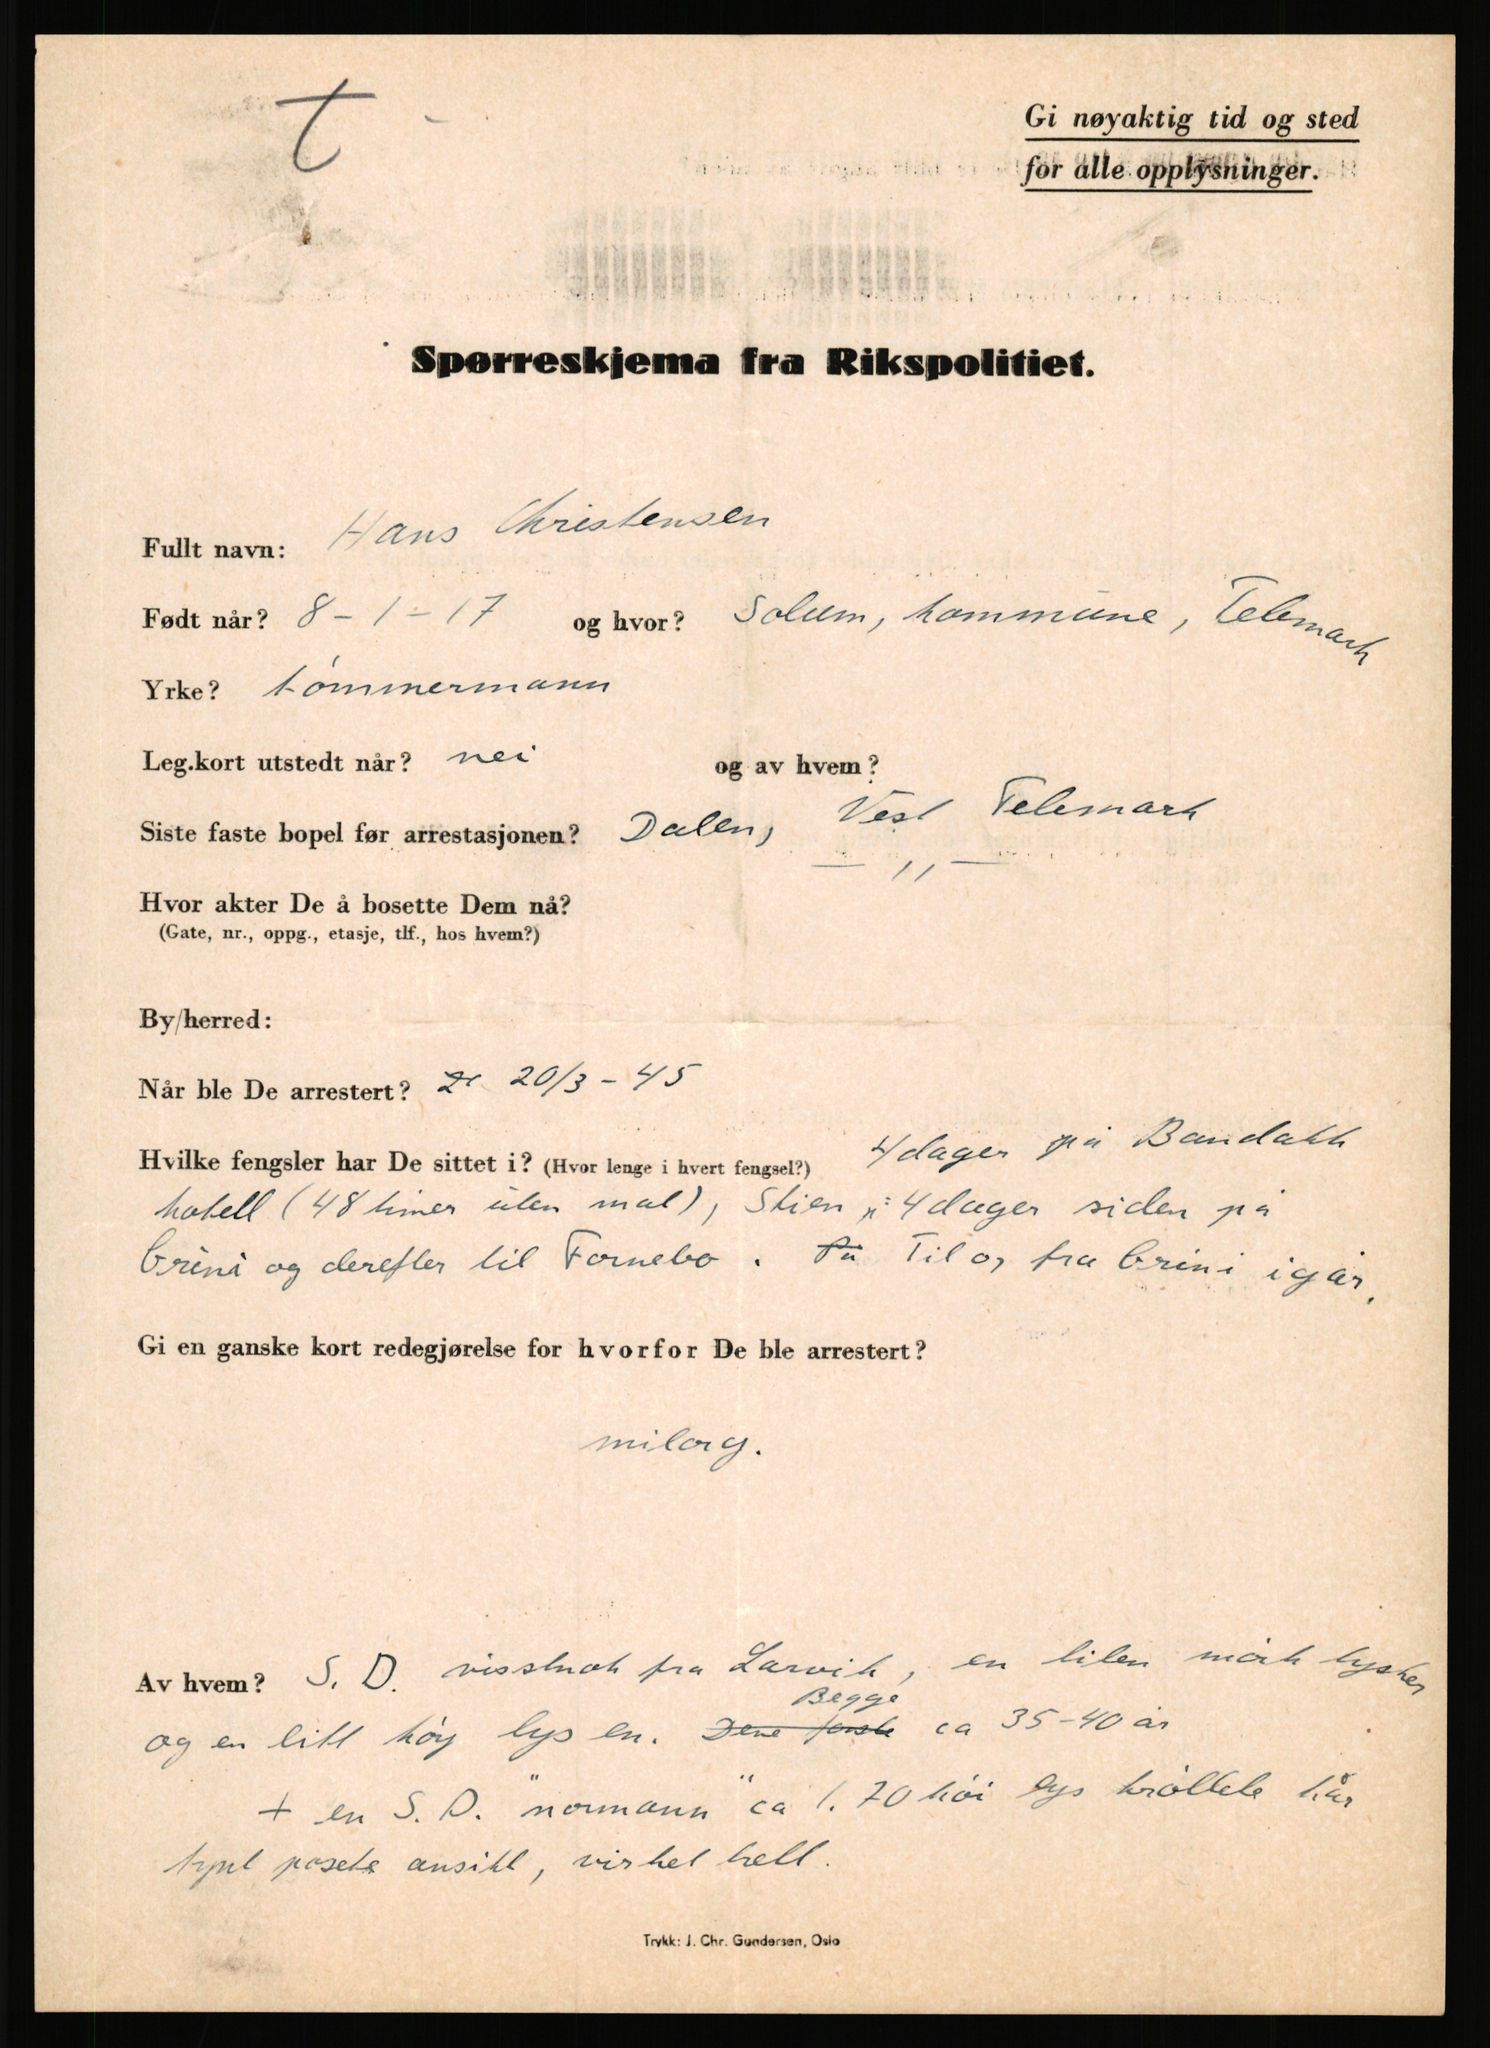 t
Gi nøyaktig tid og sted
for alle opplysninger.
Spørreskjema fra Rikspolitiet.
Fullt navn: Hans Christensen
Født når? 8-1-17 og hvor? Solum, kommune, Telemark
Yrke? tømmermann
Leg.kort utstedt når? nei og av hvem?
Siste faste bopel før arrestasjonen? Dalen, Vest Telemark
— " —
Hvor akter De å bosette Dem nå?
(Gate, nr., oppg., etasje, tlf., hos hvem?)
By/herred:
Når ble De arrestert? 20/3-45
Hvilke fengsler har De sittet i? (Hvor lenge i hvert fengsel?) 4 dager på Bandakk
hotell (48 timer uten mat), Skien 4 dager siden på
Grini og derefter til Fornebo. På Til og fra Grini igår.
Gi en ganske kort redegjørelse for hvorfor De ble arrestert?
milorg.
Av hvem? S. D. visstnok fra Larvik, en liten mørk tysker
Begge
og en litt høy lys en. Dene første ca 35-40 år
+ en S. D. "normann" ca 1.70 høi lys krøllete hår
tynt ansikt, virket
Trykk: J. Chr. Gundersen, Oslo